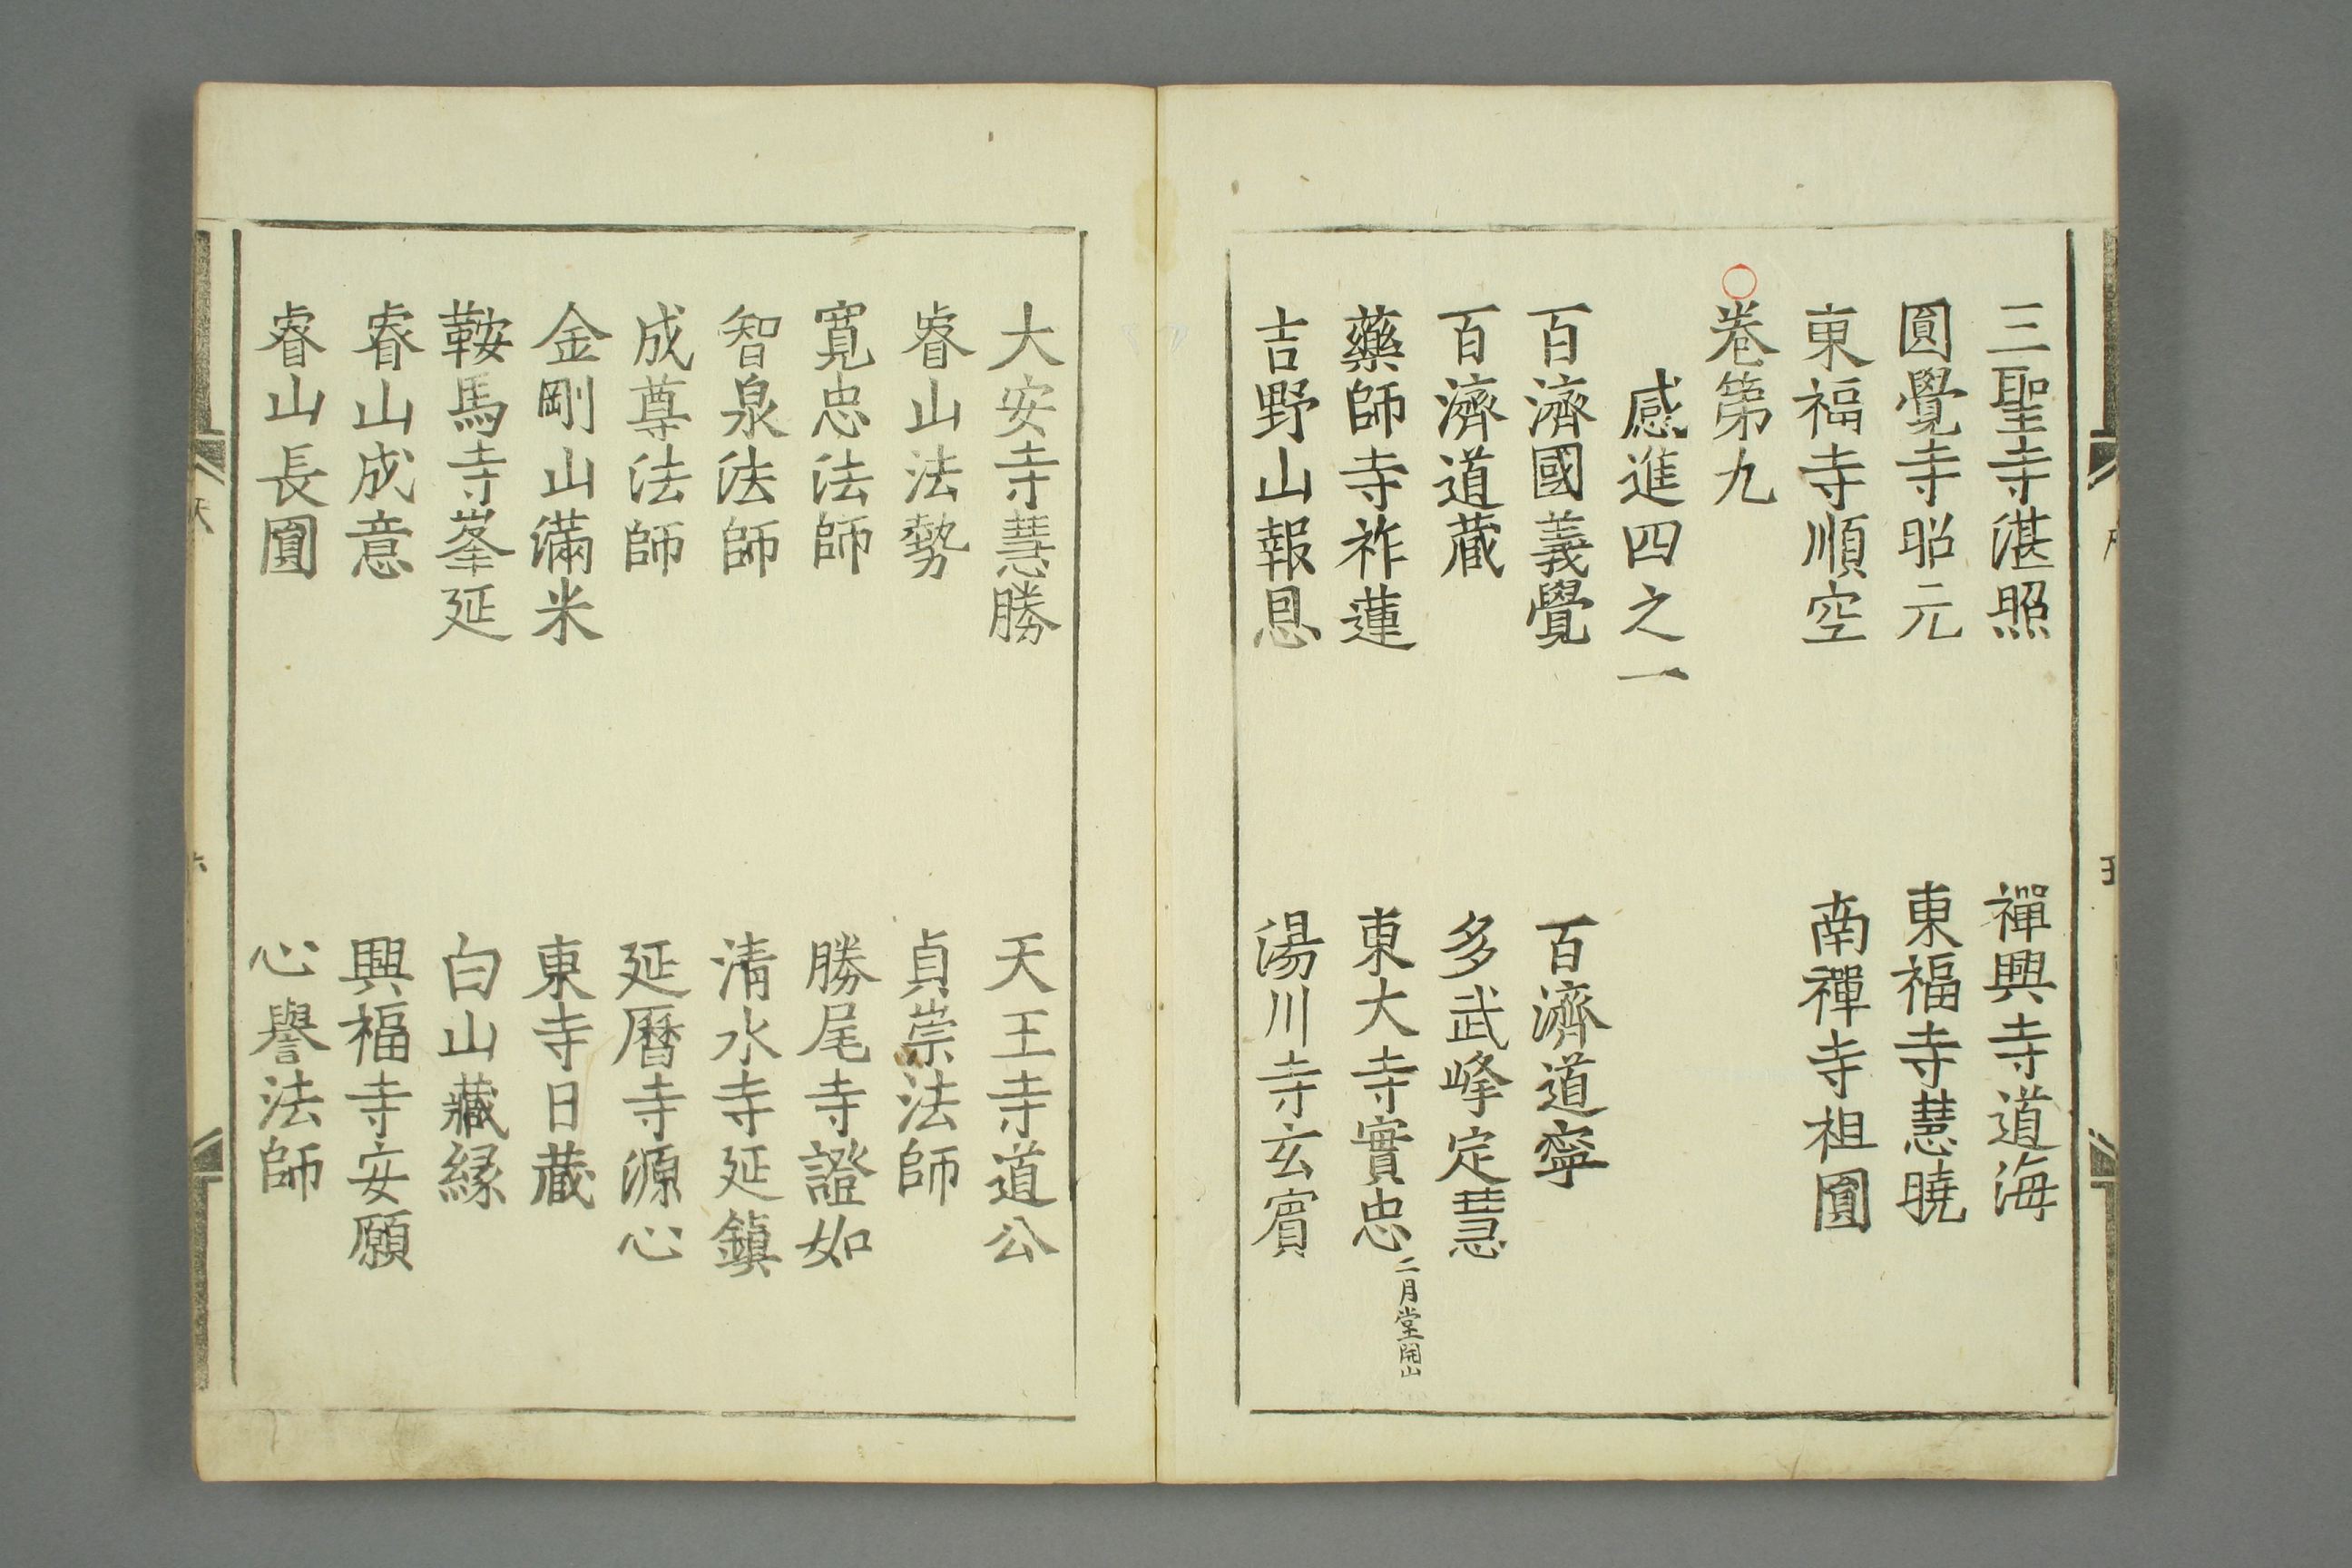 三聖寺湛照　禪興寺道海
圓覺寺昭元　東福寺慧曉
東福寺順空　南禪寺祖圓
○卷第九
感進四之一
百濟國義覺　百濟道寧
百濟道蔵　多武峰定慧
藥師寺祚蓮　東大寺實忠二月堂開山
吉野山報恩　湯川寺玄賓
大安寺慧勝　天王寺道公
睿山法勢　貞崇法師
寛忠法師　勝尾寺證如
智泉法師　清水寺延鎮
成尊法師　延曆寺源心
金剛山滿米　東寺日蔵
鞍馬寺峯延　白山藏縁
睿山成意　興福寺安願
睿山長圓　心譽法師